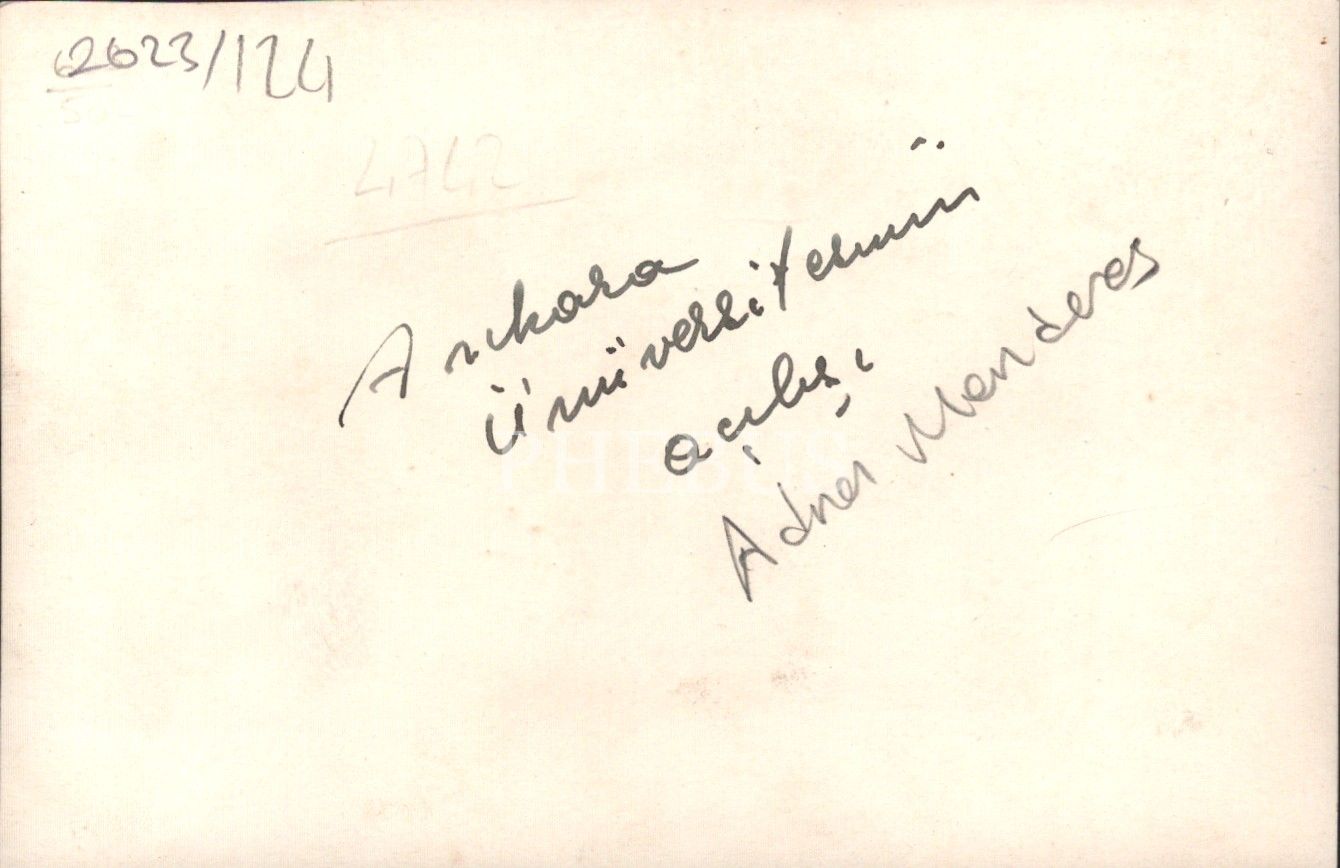 2623/124
4742
Ankara
Üniversitesinin
açılışı
Adnan Menderes
PHEBUS